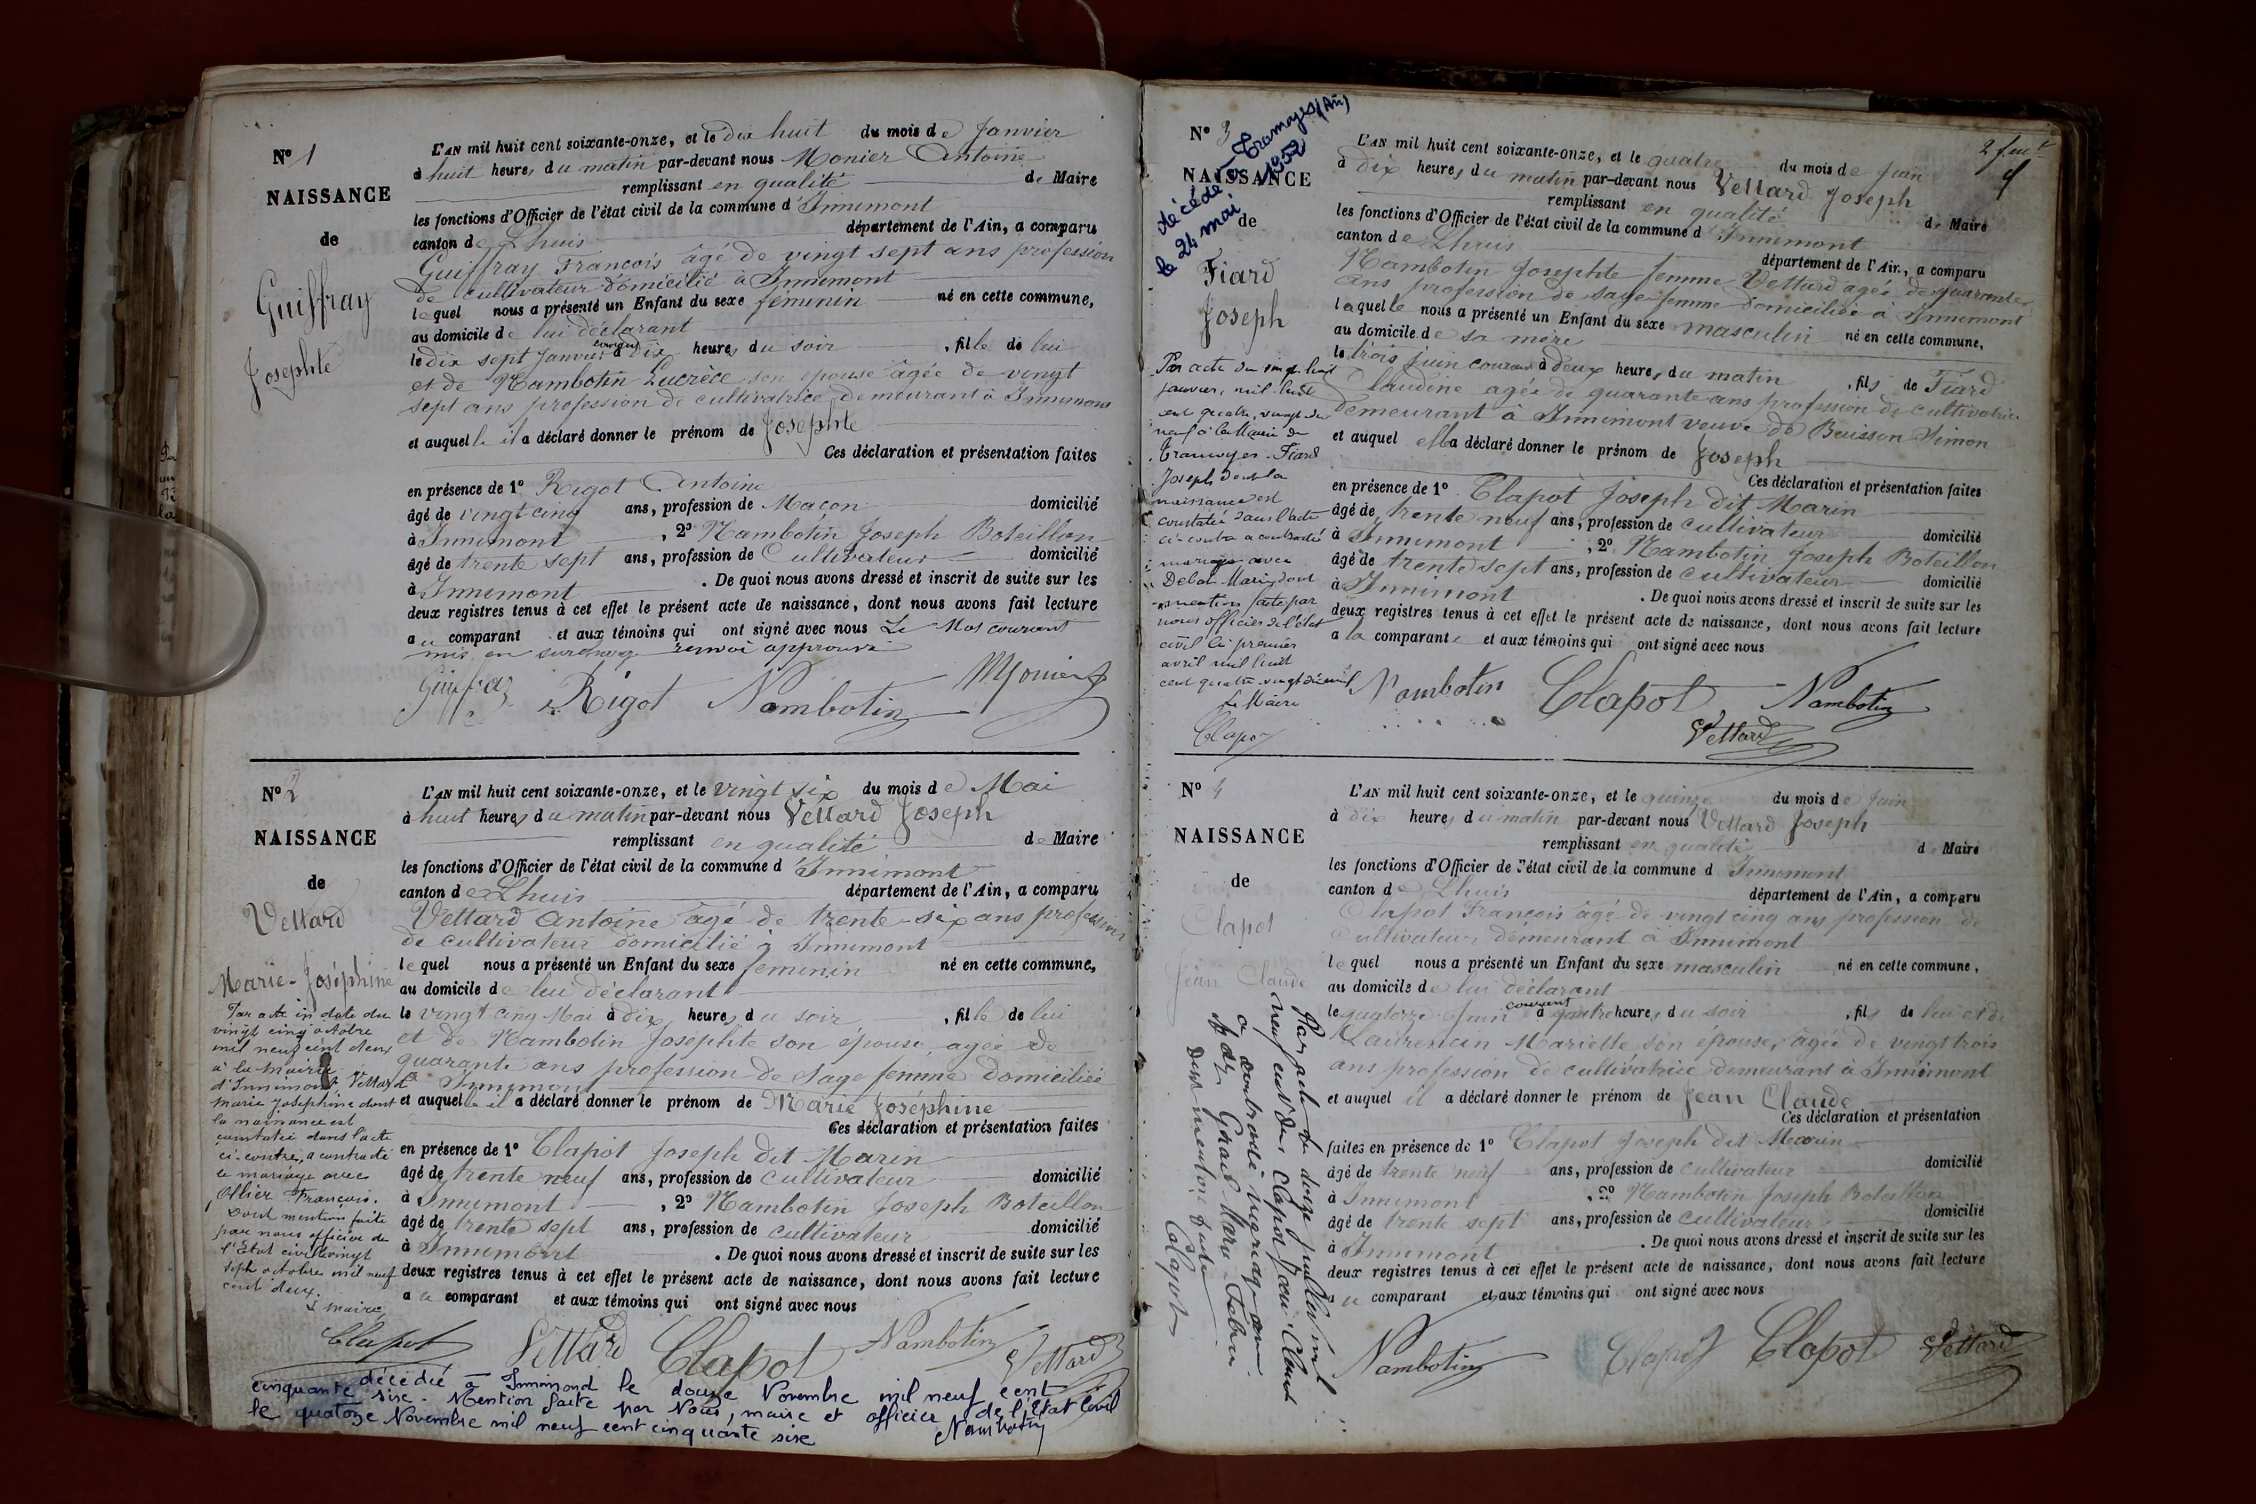 N° 1
NAISSANCE
de
Guiffray
Josephte
L'AN mil huit cent soixante-onze, et le dix huit du mois de Janvier
à huit heures du matin par-devant nous Monier Antoine
remplissant en qualité de Maire
les fonctions d'Officier de l'état civil de la commune d'Innimont
canton de Lhuis département de l'Ain, a comparu
Guiffray François âgé de vingt sept ans profession
de cultivateur domicilié à Innimont
lequel nous a présenté un Enfant du sexe féminin né en cette commune,
au domicile de lui déclarant
le dix sept Janvier courant à dix heures du soir, fille de lui
et de Nambotin Lucrèce son épouse âgée de vingt
sept ans profession de cultivatrice demeurant à Innimont
et auquelle il a déclaré donner le prénom de Josephte
Ces déclaration et présentation faites
en présence de 1° Rigot Antoine
âgé de vingt cinq ans, profession de Maçon domicilié
à Innimont, 2° Nambotin Joseph Boteillon
âgé de trente sept ans, profession de Cultivateur domicilié
à Innimont. De quoi nous avons dressé et inscrit de suite sur les
deux registres tenus à cet effet le présent acte de naissance, dont nous avons fait lecture
au comparant et aux témoins qui ont signé avec nous Le Mos courant
mis en surcharge renvoi approuvé
Guiffray Rigot Nambotin Monier
N° 2
NAISSANCE
de
Vettard
Marie-Joséphine
Par acte in date du
vingt cinq octobre
mil neuf cent deux
à la mairie
d'Innimont Vettard
Marie Joséphine dont
la naissance est
constatée dans l'acte
ci-contre, a contracté
le mariage avec
Ollier François.
Dont mention faite
par nous officier de
l'Etat civil vingt
sept octobre mil neuf
cent deux.
Le maire
Clapot
L'AN mil huit cent soixante-onze, et le vingt six du mois de Mai
à huit heures du matin par-devant nous Vettard Joseph
remplissant en qualité de Maire
les fonctions d'Officier de l'état civil de la commune d'Innimont
canton de Lhuis département de l'Ain, a comparu
Vettard Antoine âgé de trente-six ans profession
de cultivateur domicilié à Innimont
lequel nous a présenté un Enfant du sexe féminin né en cette commune,
au domicile de lui déclarant
le vingt cinq Mai à dix heures du soir, fille de lui
et de Nambotin Josephte son épouse, agée de
quarante ans profession de Sage femme domiciliée
à Innimont
et auquelle il a déclaré donner le prénom de Marie Joséphine
Ces déclaration et présentation faites
en présence de 1° Clapot Joseph dit Marin
âgé de trente neuf ans, profession de cultivateur domicilié
à Innimont, 2° Nambotin Joseph Boteillon
âgé de trente sept ans, profession de cultivateur domicilié
à Innimont. De quoi nous avons dressé et inscrit de suite sur les
deux registres tenus à cet effet le présent acte de naissance, dont nous avons fait lecture
au comparant et aux témoins qui ont signé avec nous
Vettard Clapot Nambotin Vettard
décédée à Innimond le douze Novembre mil neuf cent
cinquante sise. Mention faite par Nous, maire et officier de l'Etat Civil
le quatorze Novembre mil neuf cent cinquante sise
Nambotin
2 feuillet
N° 3
NAISSANCE
de
Fiard
Joseph
décédé à Tramoyes (Ain)
le 24 mai 1952
Par acte du vingt huit
janvier, mil huit
cent quatre vingt dix
neuf à la Mairie de
Tramoyes. Fiard
Joseph dont la
naissance est
constatée dans l'acte
ci-contre a contracté
mariage avec
Marie, dont
mention faite par
nous officier de l'état
civil le premier
avril mil huit
cent quatre vingt dix neuf
Le Maire
Clapot
L'AN mil huit cent soixante-onze, et le quatre du mois de Juin
à dix heures du matin par-devant nous Vettard Joseph
remplissant en qualité de Maire
les fonctions d'Officier de l'état civil de la commune d'Innimont
canton de Lhuis département de l'Ain, a comparu
Nambotin Josephte femme Vettard agée de quarante
ans profession de sage femme domiciliée à Innimont
laquelle nous a présenté un Enfant du sexe masculin né en cette commune,
au domicile de sa mère
le trois Juin courant à deux heures du matin, fils de Fiard
Claudine agée de quarante ans profession de cultivatrice
demeurant à Innimont veuve de Buisson Simon
et auquel elle a déclaré donner le prénom de Joseph
Ces déclaration et présentation faites
en présence de 1° Clapot Joseph dit Marin
âgé de trente neuf ans, profession de cultivateur domicilié
à Innimont, 2° Nambotin Joseph Boteillon
âgé de trente sept ans, profession de cultivateur domicilié
à Innimont. De quoi nous avons dressé et inscrit de suite sur les
deux registres tenus à cet effet le présent acte de naissance, dont nous avons fait lecture
a la comparante et aux témoins qui ont signé avec nous
Nambotin Clapot Nambotin
Vettard
N° 4
NAISSANCE
de
Clapot
Jean Claude
Par acte du douze juillet mil
neuf cent deux Clapot Jean Claude
a contracté mariage avec
Dont mention faite
Clapot
L'AN mil huit cent soixante-onze, et le quinze du mois de Juin
à dix heures du matin par-devant nous Vettard Joseph
remplissant en qualité de Maire
les fonctions d'Officier de l'état civil de la commune d Innimont
canton de Lhuis département de l'Ain, a comparu
Clapot François âgé de vingt cinq ans profession de
Cultivateur demeurant à Innimont
lequel nous a présenté un Enfant du sexe masculin né en cette commune,
au domicile de lui déclarant
le quatorze Juin courant à quatre heures du soir, fils de lui et de
Laurencin Mariette son épouse, âgée de vingt trois
ans profession de cultivatrice demeurant à Innimont
et auquel il a déclaré donner le prénom de Jean Claude
Ces déclaration et présentation
faites en présence de 1° Clapot Joseph dit Marin
âgé de trente neuf ans, profession de cultivateur domicilié
à Innimont, 2° Nambotin Joseph Boteillon
âgé de trente sept ans, profession de cultivateur domicilié
à Innimont. De quoi nous avons dressé et inscrit de suite sur les
deux registres tenus à cet effet le présent acte de naissance, dont nous avons fait lecture
au comparant et aux témoins qui ont signé avec nous
Nambotin Clapot Clapot Vettard